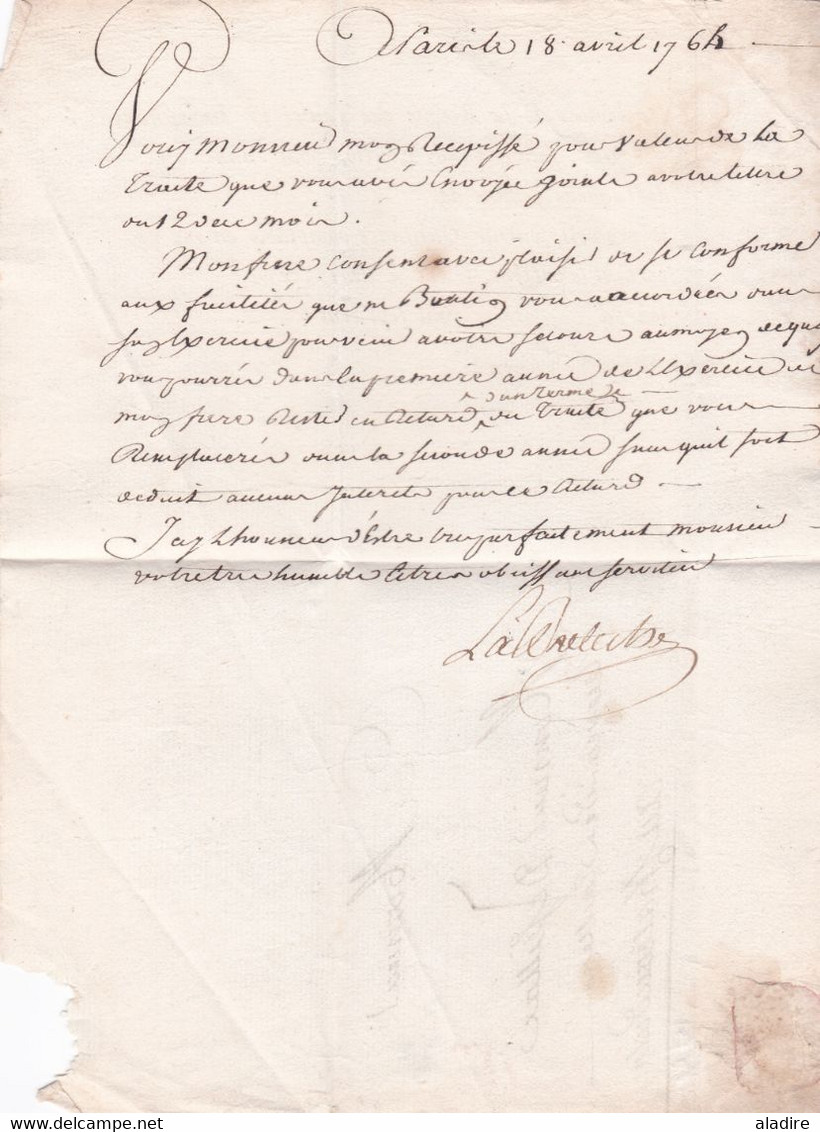 A Paris le 18 avril 1764
Voicy Monsieur mon Recepissé pour valeur de La
Traite que vous avés Envoyée jointe a votre lettre
du 12 de ce mois.
Mon frere consent avec plaisir de se conformer
aux facilités que m Boutin vous a accordées dans
son Exercice pour venir a votre secours au moyen de quoy
vous pourrés dans la premiere année de l'Exercice de
mon frere Rester en Retard d'un Terme de Traité que vous
Remplacerés dans la seconde année sans quil soit
deduit aucuns Interets pour ce Retard
J'ay L'honneur d'Estre tres parfaitement monsieur
votre tres humble Et tres obeissant serviteur
aladire
© delcampe.net